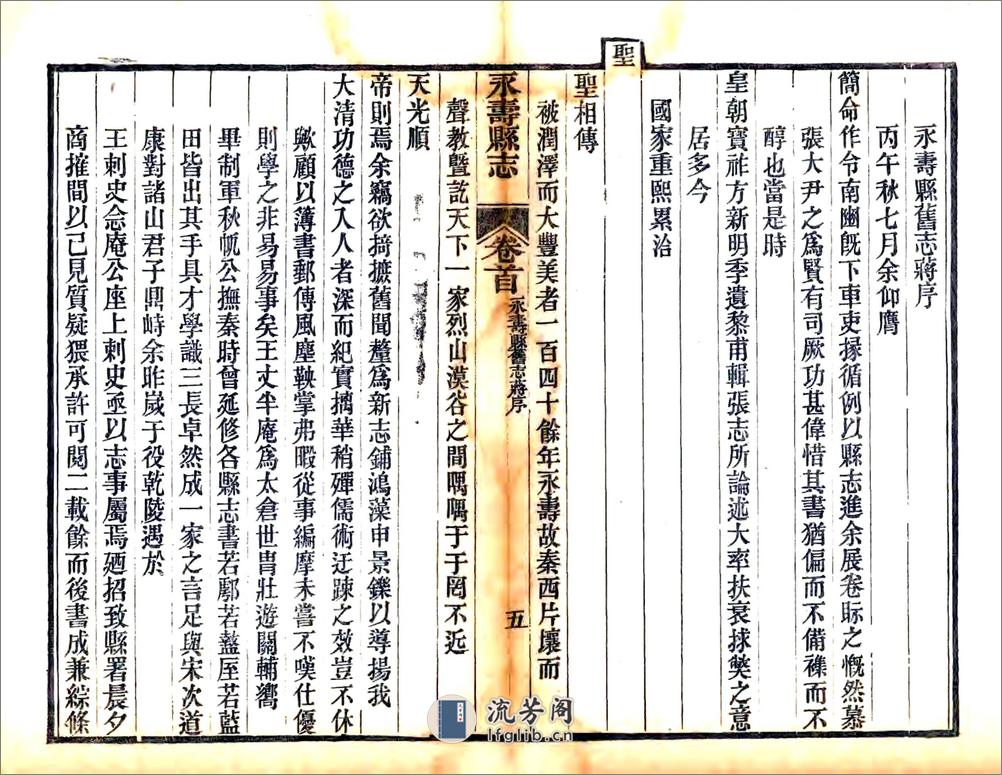 永壽縣舊志蔣序
丙午秋七月余仰膺
簡命作令南豳旣下車吏掾循例以縣志進余展卷眎之慨然慕
張大尹之爲賢有司厥功甚偉惜其書猶偏而不備襍而不
醇也當是時
皇朝寶祚方新明季遺黎甫輯張志所論述大率扶衰捄獘之意
居多今
國家重熙累洽
聖
聖相傳
被潤澤而大豐美者一百四十餘年永壽故秦西片壤而
永壽縣志
卷首
永壽縣舊志蔣序
五
聲教曁訖天下一家烈山漠谷之間喁喁于于罔不近
天光順
帝則焉余竊欲掎摭舊聞釐爲新志鋪鴻藻申景鑠以導揚我
大清功德之入人者深而紀實摛華稍殫儒術迂踈之效豈不休
歟顧以薄書郵傳風塵鞅掌弗暇從事編摩未嘗不嘆仕優
則學之非易易事矣王丈半庵爲太倉世胄壯遊關輔嚮
畢制軍秋帆公撫秦時曾延修各縣志書若鄠若盩厔若藍
田皆出其手具才學識三長卓然成一家之言足與宋次道
康對諸山君子鼎峙余昨歲于役乾陵遇於
王刺史念庵公座上刺史亟以志事屬焉廼招致縣署晨夕
商搉間以已見質疑猥承許可閱二載餘而後書成兼綜條
流芳阁
lfglib.cn